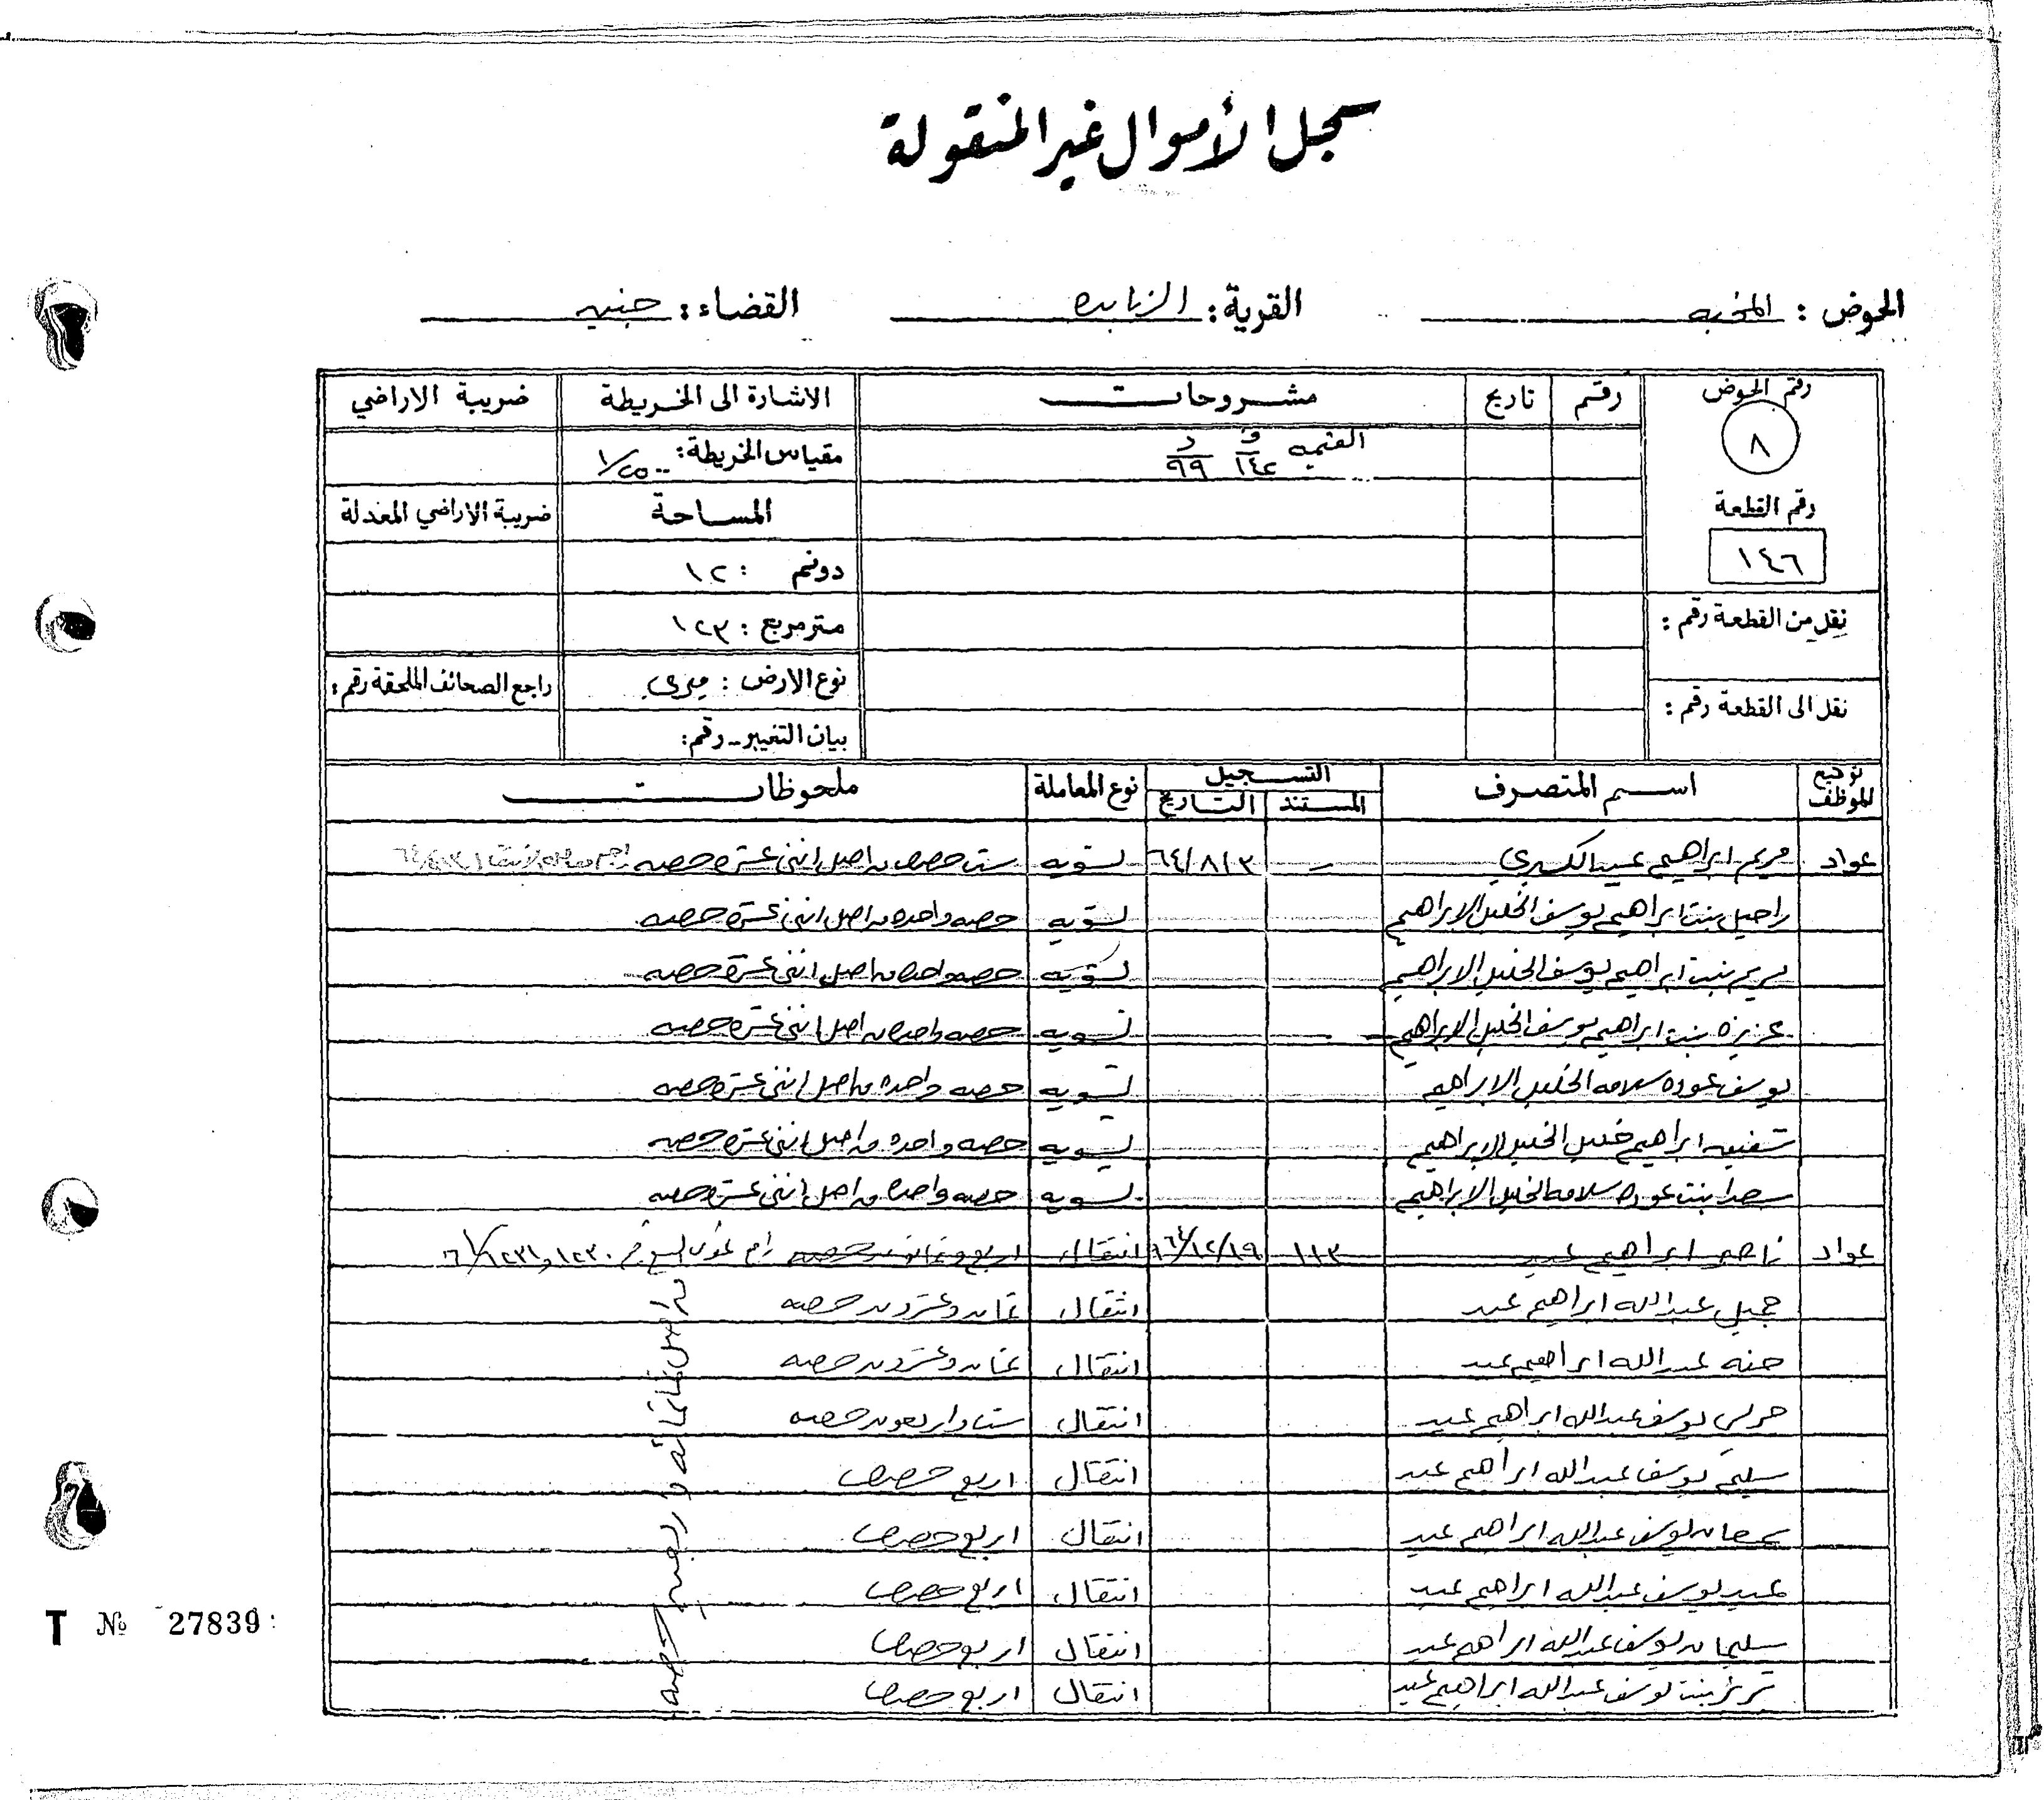 سجل الأموال غير المنقولة
الحوض : المخبه القرية : الزبابده القضاء : جنين
رقم الحوض رقم تاريخ مشروحات الاشارة الى الخريطة ضريبة الاراضي
٨ القيمه ف ١٤٢ د ٩٩ مقياس الخريطة : ١/٢٥٠٠
رقم القطعة المساحة ضريبة الاراضي المعدلة
١٤٦ دونم : ١٢
نقل من القطعة رقم : متر مربع : ١٢٣
نوع الارض : ميري راجع الصحائف الملحقة رقم :
نقل الى القطعة رقم : بيان التغيير - رقم :
توقيع الموظف اسم المتصرف التسجيل نوع المعاملة ملحوظات
المستند التاريخ
عواد مريم ابراهيم عيد ٦٤/٨/٣ تسويه ست حصص من اصل اثني عشره حصه
راحيل بنت ابراهيم يوسف الخليل الابراهيم تسويه حصه واحده من اصل اثني عشره حصه
مريم بنت ابراهيم يوسف الخليل الابراهيم تسويه حصه واحده من اصل اثني عشره حصه
عزيزه بنت ابراهيم يوسف الخليل الابراهيم تسويه حصه واحده من اصل اثني عشره حصه
يوسف عوده سلامه الخليل الابراهيم تسويه حصه واحده من اصل اثني عشره حصه
شفيقه ابراهيم خليل الخليل الابراهيم تسويه حصه واحده من اصل اثني عشره حصه
بنت عوده سلامه الخليل الابراهيم تسويه حصه واحده من اصل اثني عشره حصه
عواد ناصر ابراهيم عيد ١١٣ ٦٤/١٢/١٩ انتقال اربع وثمانون حصه
جميل عبدالله ابراهيم عيد انتقال ثمان وعشرون حصه
حنه عبدالله ابراهيم عيد انتقال ثمان وعشرون حصه
يوسف عبدالله ابراهيم عيد انتقال ست واربعون حصه
سليم يوسف عبدالله ابراهيم عيد انتقال اربع حصص
سمعان يوسف عبدالله ابراهيم عيد انتقال اربع حصص
عيد يوسف عبدالله ابراهيم عيد انتقال اربع حصص
سليمان يوسف عبدالله ابراهيم عيد انتقال اربع حصص
بنت يوسف عبدالله ابراهيم عيد انتقال اربع حصص
من اصل ثمانمائه واربعين حصه
T № 27839